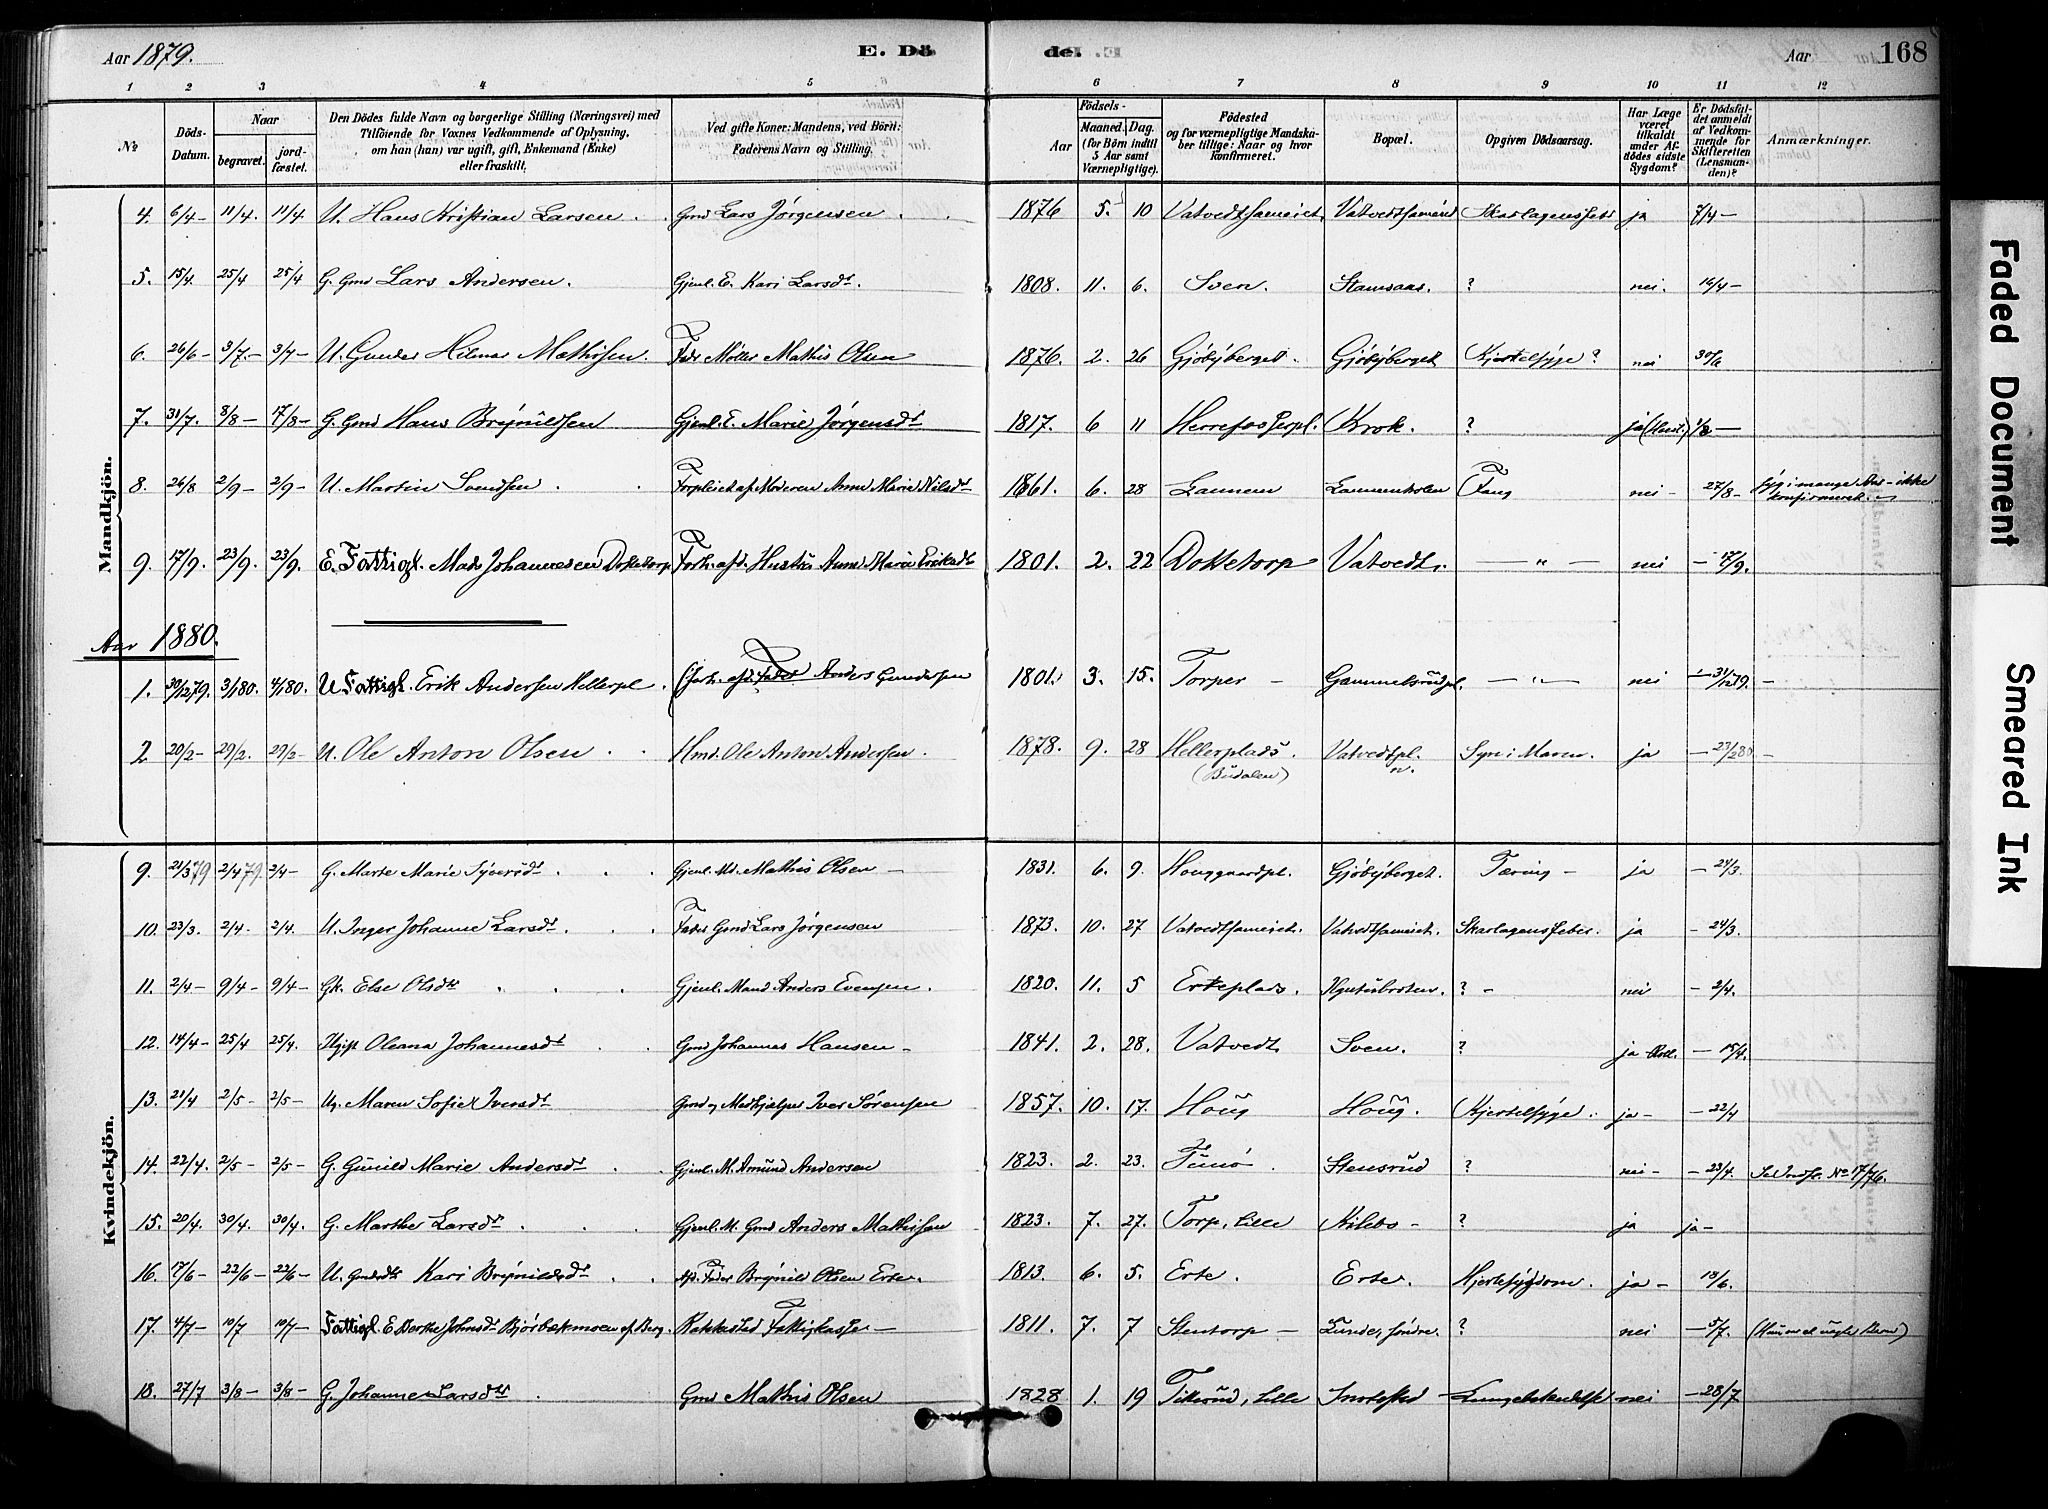 Aar 1879. E. Dö de. Aar 168
1 2 3 4 5 6 7 8 9 10 11 12
No Döds-Datum. Naar begravet. jordfæstet. Den Dödes fulde Navn og borgerlige Stilling (Næringsvei) med Tilföiende for Voxnes Vedkommende af Oplysning, om han (hun) var ugift, gift, Enkemand (Enke) eller fraskilt. Ved gifte Koner: Mandens, ved Börn: Faderens Navn og Stilling. Födsels- Aar Maaned. Dag. (for Börn indtil 5 Aar samt Værnepligtige). Födested og for værnepligtige Mandskaber tillige: Naar og hvor konfirmeret. Bopæl. Opgiven Dödsaarsag. Har Læge været tilkaldt under Afdödes sidste Sygdom? Er Dödsfaldet anmeldt af Vedkommende for Skifteretten (Lensmanden)? Anmærkninger.
Mandkjön.
4. 6/4- 11/4. 11/4. U. Hans Kristian Larsen . . Gmd Lars Jørgensen . . 1876 5. 10 Vatvedtsameiet. Vatvedtsameiet Skarlagensfeber ja 7/4-
5. 15/4. 25/4 25/4 G. Gmd Lars Andersen. Gjenl. E. Kari Larsdr. 1808. 11. 6. Sven. Stamsaas. ? nei. 16/4-
6. 26/6- 3/7- 3/7- U. Gunder Hilmar Mathisen. Fader Møller Mathis Olsen 1876. 2. 26 Gjøbyberget. Gjøbyberget Kjertelsyge? nei 30/6
7. 31/7. 8/8- 17/8- G. Gmd Hans Brynildsen Gjenl. E. Marie Jørgensdr 1817. 6 11 Herrefosserpl. Krok. ? ja 1/8-
8. 26/8 2/9- 2/9- U. Martin Svendsen . . Forpleiet af Moderen Anne Marie Nilsdr 1861. 6. 28 Lannem Lannemholen Tæring nei- 27/8- syg i mange Aar - ikke konfirmeret.
9. 17/9. 23/9. 23/9. E. Fattigl. Mads Johannesen Dokketorp Forh. afd. Hustru Anne Marie Eriksdr 1801. 2. 22 Dokketorp Vatvedt. - " - nei - 17/9.
Aar 1880.
1. 30/12 79. 3/1 80. 4/1 80. U. Fattigl. Erik Andersen Hellerpl. (Forh. afd. Fader Anders Gundersen 1801. 3. 15. Torper - Gammelsrudpl. - " - nei - 31/12 79. -
2 20/2- 29/2. 29/2- U. Ole Anton Olsen . . Hmd. Ole Anton Andersen. 1878. 9. 28 Hellerplads. (Budalen) Vatvedtpl. n. Syn i Maven. ja - 23/2 80 -
Kvindekjön.
9. 21/3 79 2/4 79. 2/4- G. Marte Marie Syversdr . . . Gjenl. Md. Mathis Olsen - 1831. 6. 9. Houggaardpl. Gjøbyberget. Tæring - ja - 24/3.
10. 23/3. 2/4. 2/4. U. Inger Johanne Larsdr . . . Fader Gmd Lars Jørgensen 1873. 10. 27 Vatvedtsameiet. Vatvedtsameiet. Skarlagensfeber. ja - 24/3.
11. 2/4- 9/4- 9/4- Gk. Else Olsdtr . . . Gjenl. Mand Anders Evensen. 1820. 11. 5 Erteplads. Knutsbroten. ? - nei - 2/4.
12. 14/4- 25/4 25/4. Ugift Oleana Johannesdr . . Gmd Johannes Hansen - 1841. 2. 28. Vatvedt Sven. ? ja - 15/4.
13. 21/4 2/5- 2/5- Ug. Maren Sofie Iversdr Gmd og Medhjælper Iver Sørensen 1857. 10. 17. Houg Houg. Kjertelsyge. ja- - 22/4
14. 22/4. 2/5- 2/5- G. Gunild Marie Andersdr . . Gjenl. M. Amund Andersen 1823. 2. 23. Tunø . Stensrud ? nei- - 23/4. Se Indfl. No 17/76.
15. 20/4. 30/4. 30/4. G. Marthe Larsdr . . . Gjenl. M. Gmd Anders Mathisen 1823. 7. 27. Torp, lille Kilebo - ? ja ja-
16. 17/6- 22/6- 22/6- U. Gmdsdtr Kari Brynildsdr . . Afd. Fader Brynild Olsen Erte. 1813. 6. 5. Erte. Erte. Hjertesygdom. ja- 18/6.
17. 4/7- 10/7 10/7- Fattigl. E Dorthe Johnsdr Bjørbækmoen af Berg. Rakkestad Fattigkasse - 1811. 7. 7 Stentorp - Lunde, søndre. ? nei - 5/7.
18. 27/7 3/8- 3/8- G. Johanne Larsdtr . Gmd Mathis Olsen 1828 1. 19 Titterud, lille - Lungebetændelse nei - 28/7
Faded Document
Smeared Ink